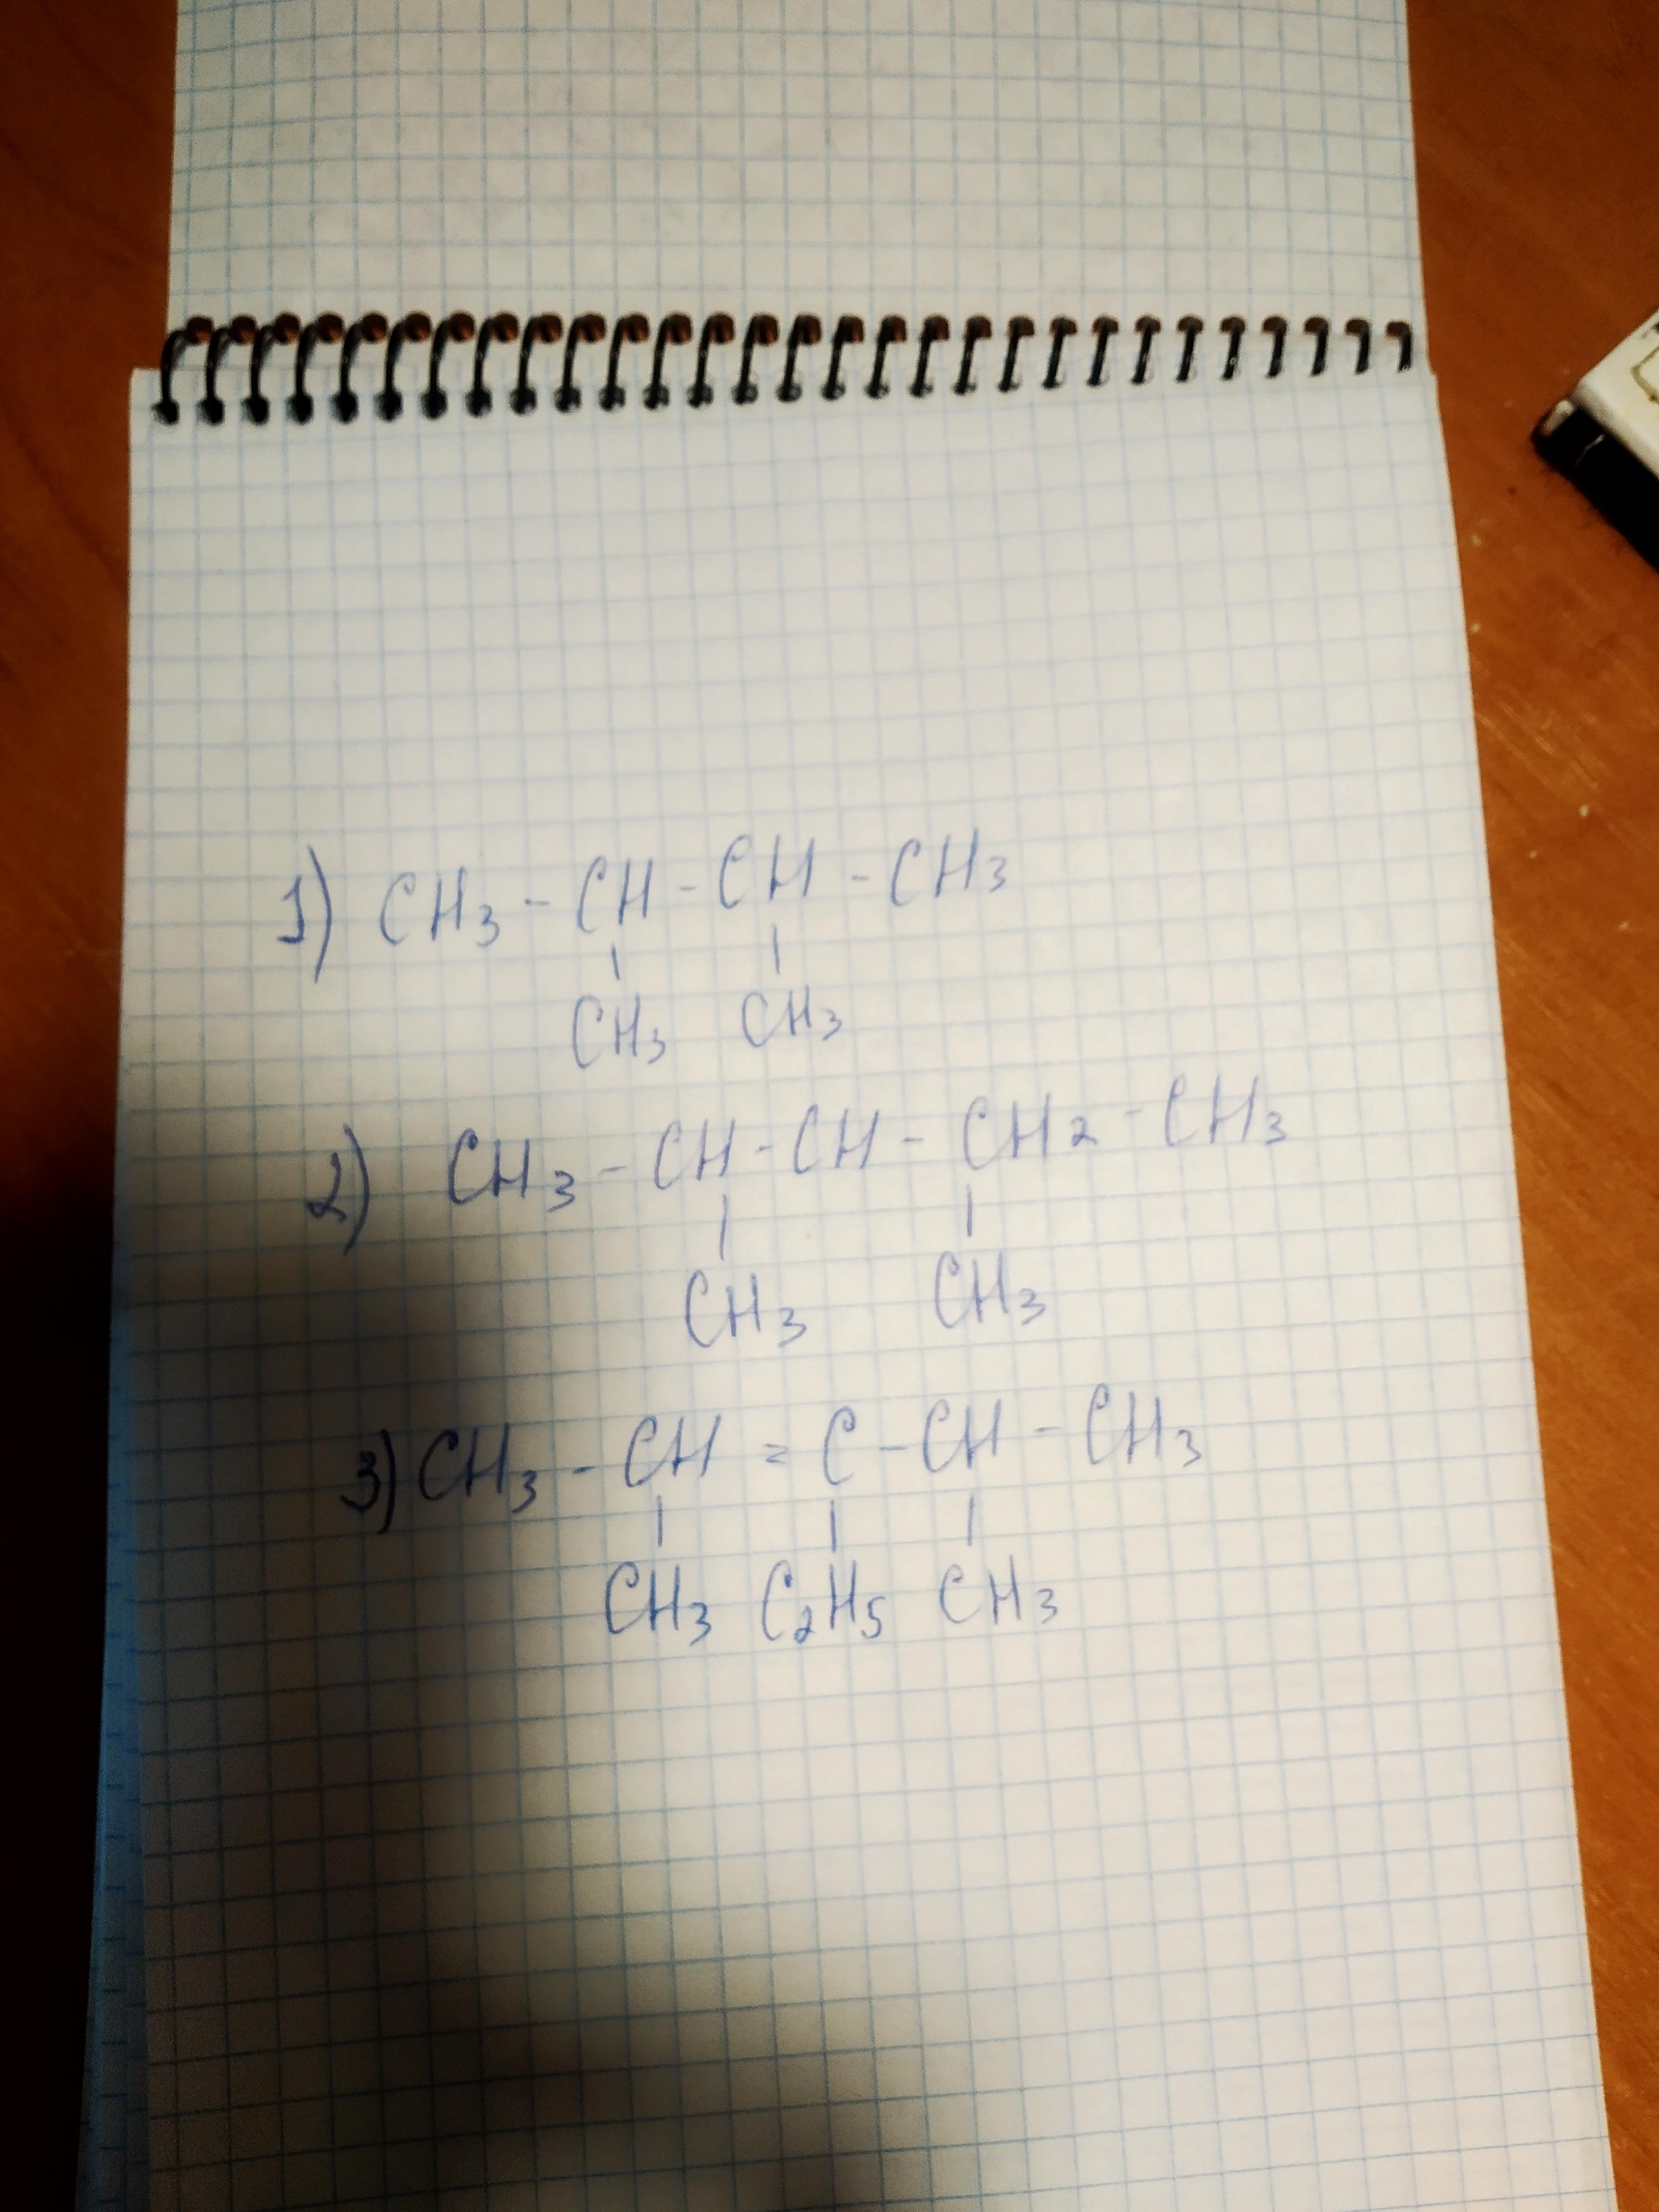 1) CH3 - CH - CH - CH3
| |
CH3 CH3
2) CH3 - CH - CH - CH2 - CH3
| |
CH3 CH3
3) CH3 - CH = C - CH - CH3
| | |
CH3 C2H5 CH3